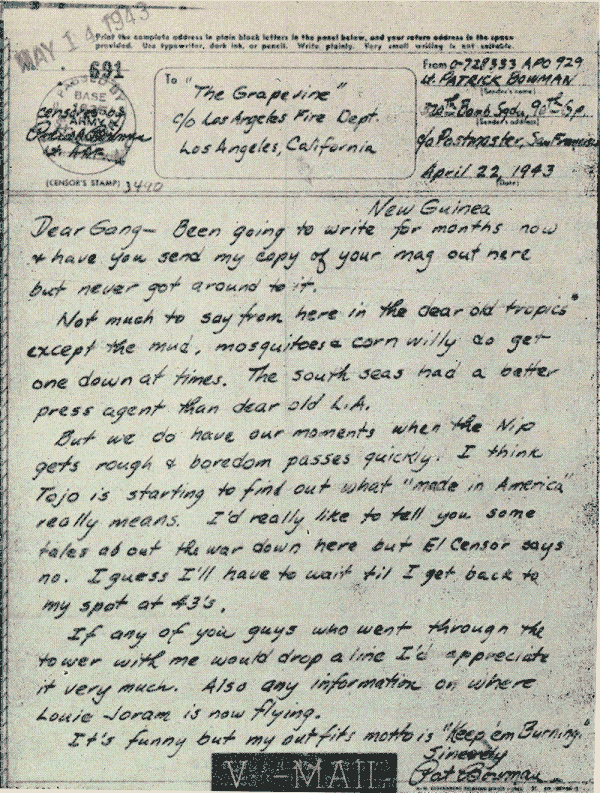 MAY 14 1943
Print the complete address in plain block letters in the panel below, and your return address in the space
provided. Use typewriter, dark ink, or pencil. Write plainly. Very small writing is not suitable.
691
PASSED BY
BASE
ARMY
(CENSOR'S STAMP)
3490
To "The Grapevine"
c/o Los Angeles Fire Dept.
Los Angeles, California
From O-728333 APO 929
Lt. PATRICK BOWMAN
(Sender's name)
320th Bomb Sqdn, 90th Gp.
(Sender's address)
c/o Postmaster, San Francisco
April 22, 1943
(Date)
New Guinea
Dear Gang— Been going to write for months now
& have you send my copy of your mag out here
but never got around to it.
Not much to say from here in the dear old tropics"
except the mud, mosquitoes & corn willy do get
one down at times. The south seas had a better
press agent than dear old L.A.
But we do have our moments when the Nip
gets rough & boredom passes quickly. I think
Tojo is starting to find out what "made in America"
really means. I'd really like to tell you some
tales about the war down here but El Censor says
no. I guess I'll have to wait til I get back to
my spot at 43's.
If any of you guys who went through the
tower with me would drop a line I'd appreciate
it very much. Also any information on where
Louie Joram is now flying.
It's funny but my outfits motto is "Keep 'em Burning."
Sincerely
Pat Bowman
V--MAIL